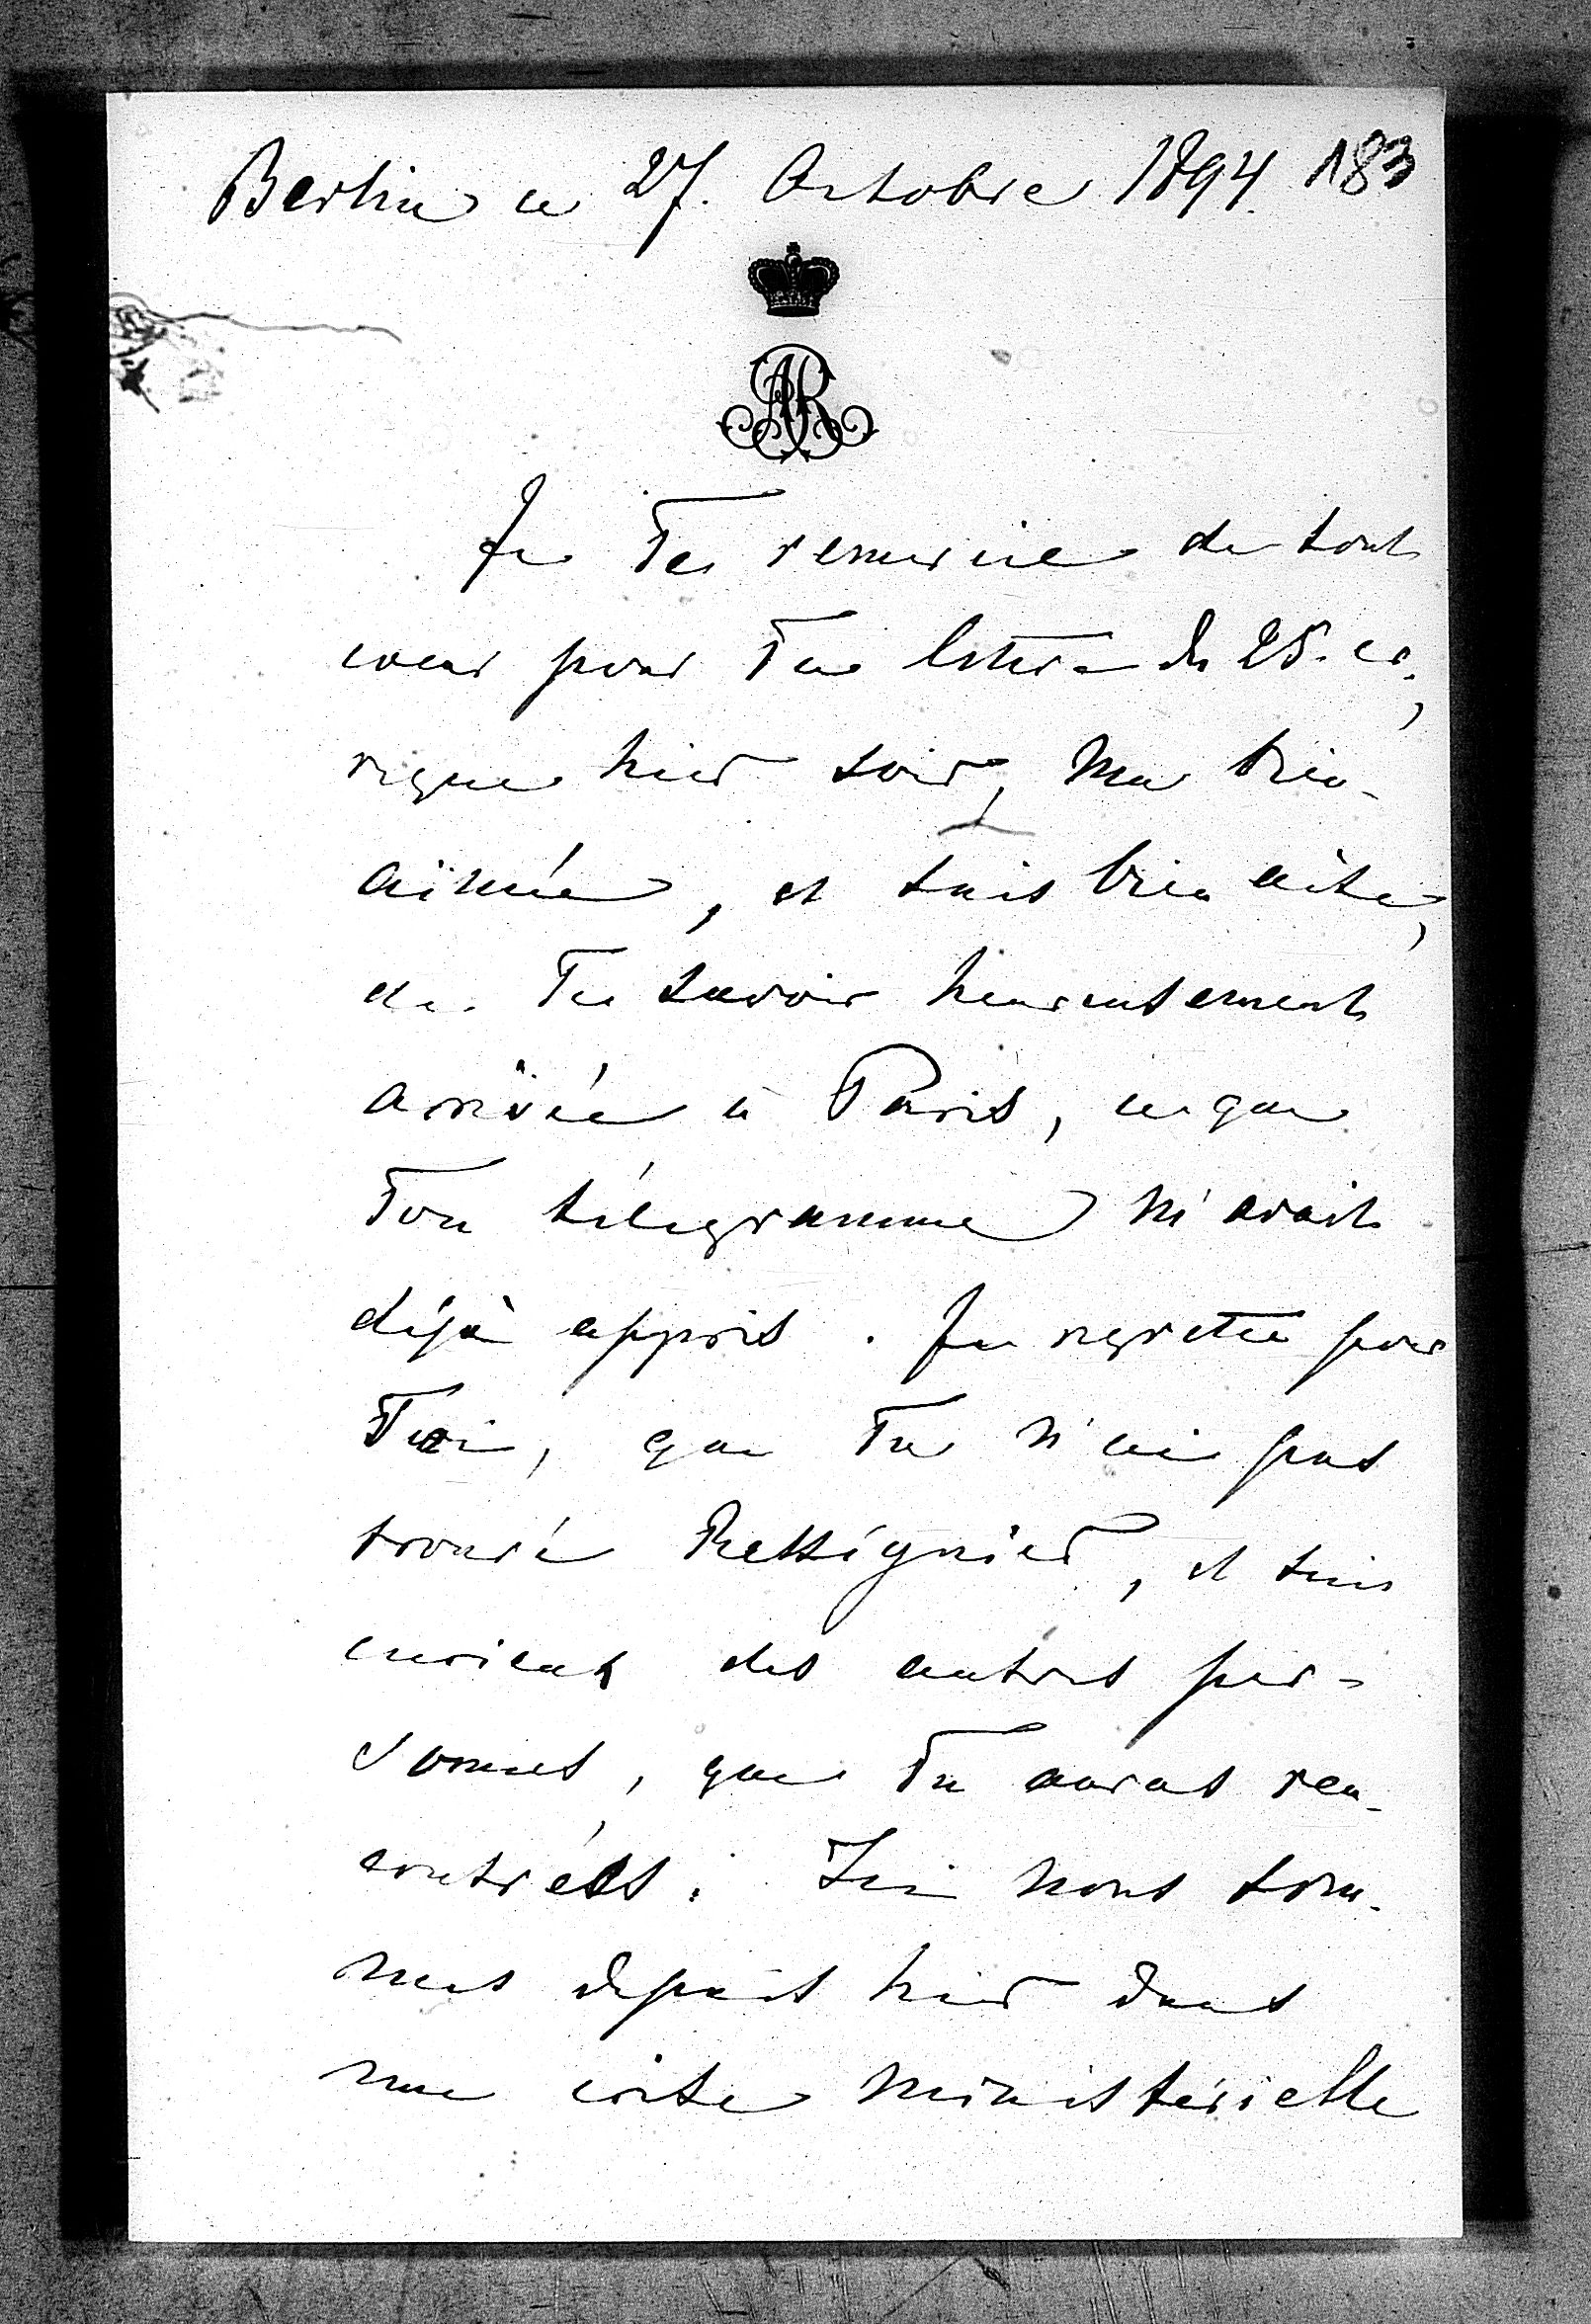 Berlin ce 27. Octobre 1894. 183
AR
Je Te remercie de tout
coeur pour Ta lettre du 25. cr.,
reçue hier soir, ma bien-
aimée, et suis bien aise,
de Te savoir heureusement
arrivée à Paris, ce que
Ton télégramme m'avait
déjà appris. Je regrette pour
Toi, que Tu n'aie pas
trouvé, et suis
curieux des autres per-
sonnes, que Tu auras ren-
contrées. Ici nous som-
mes depuis hier dans
une crise ministérielle